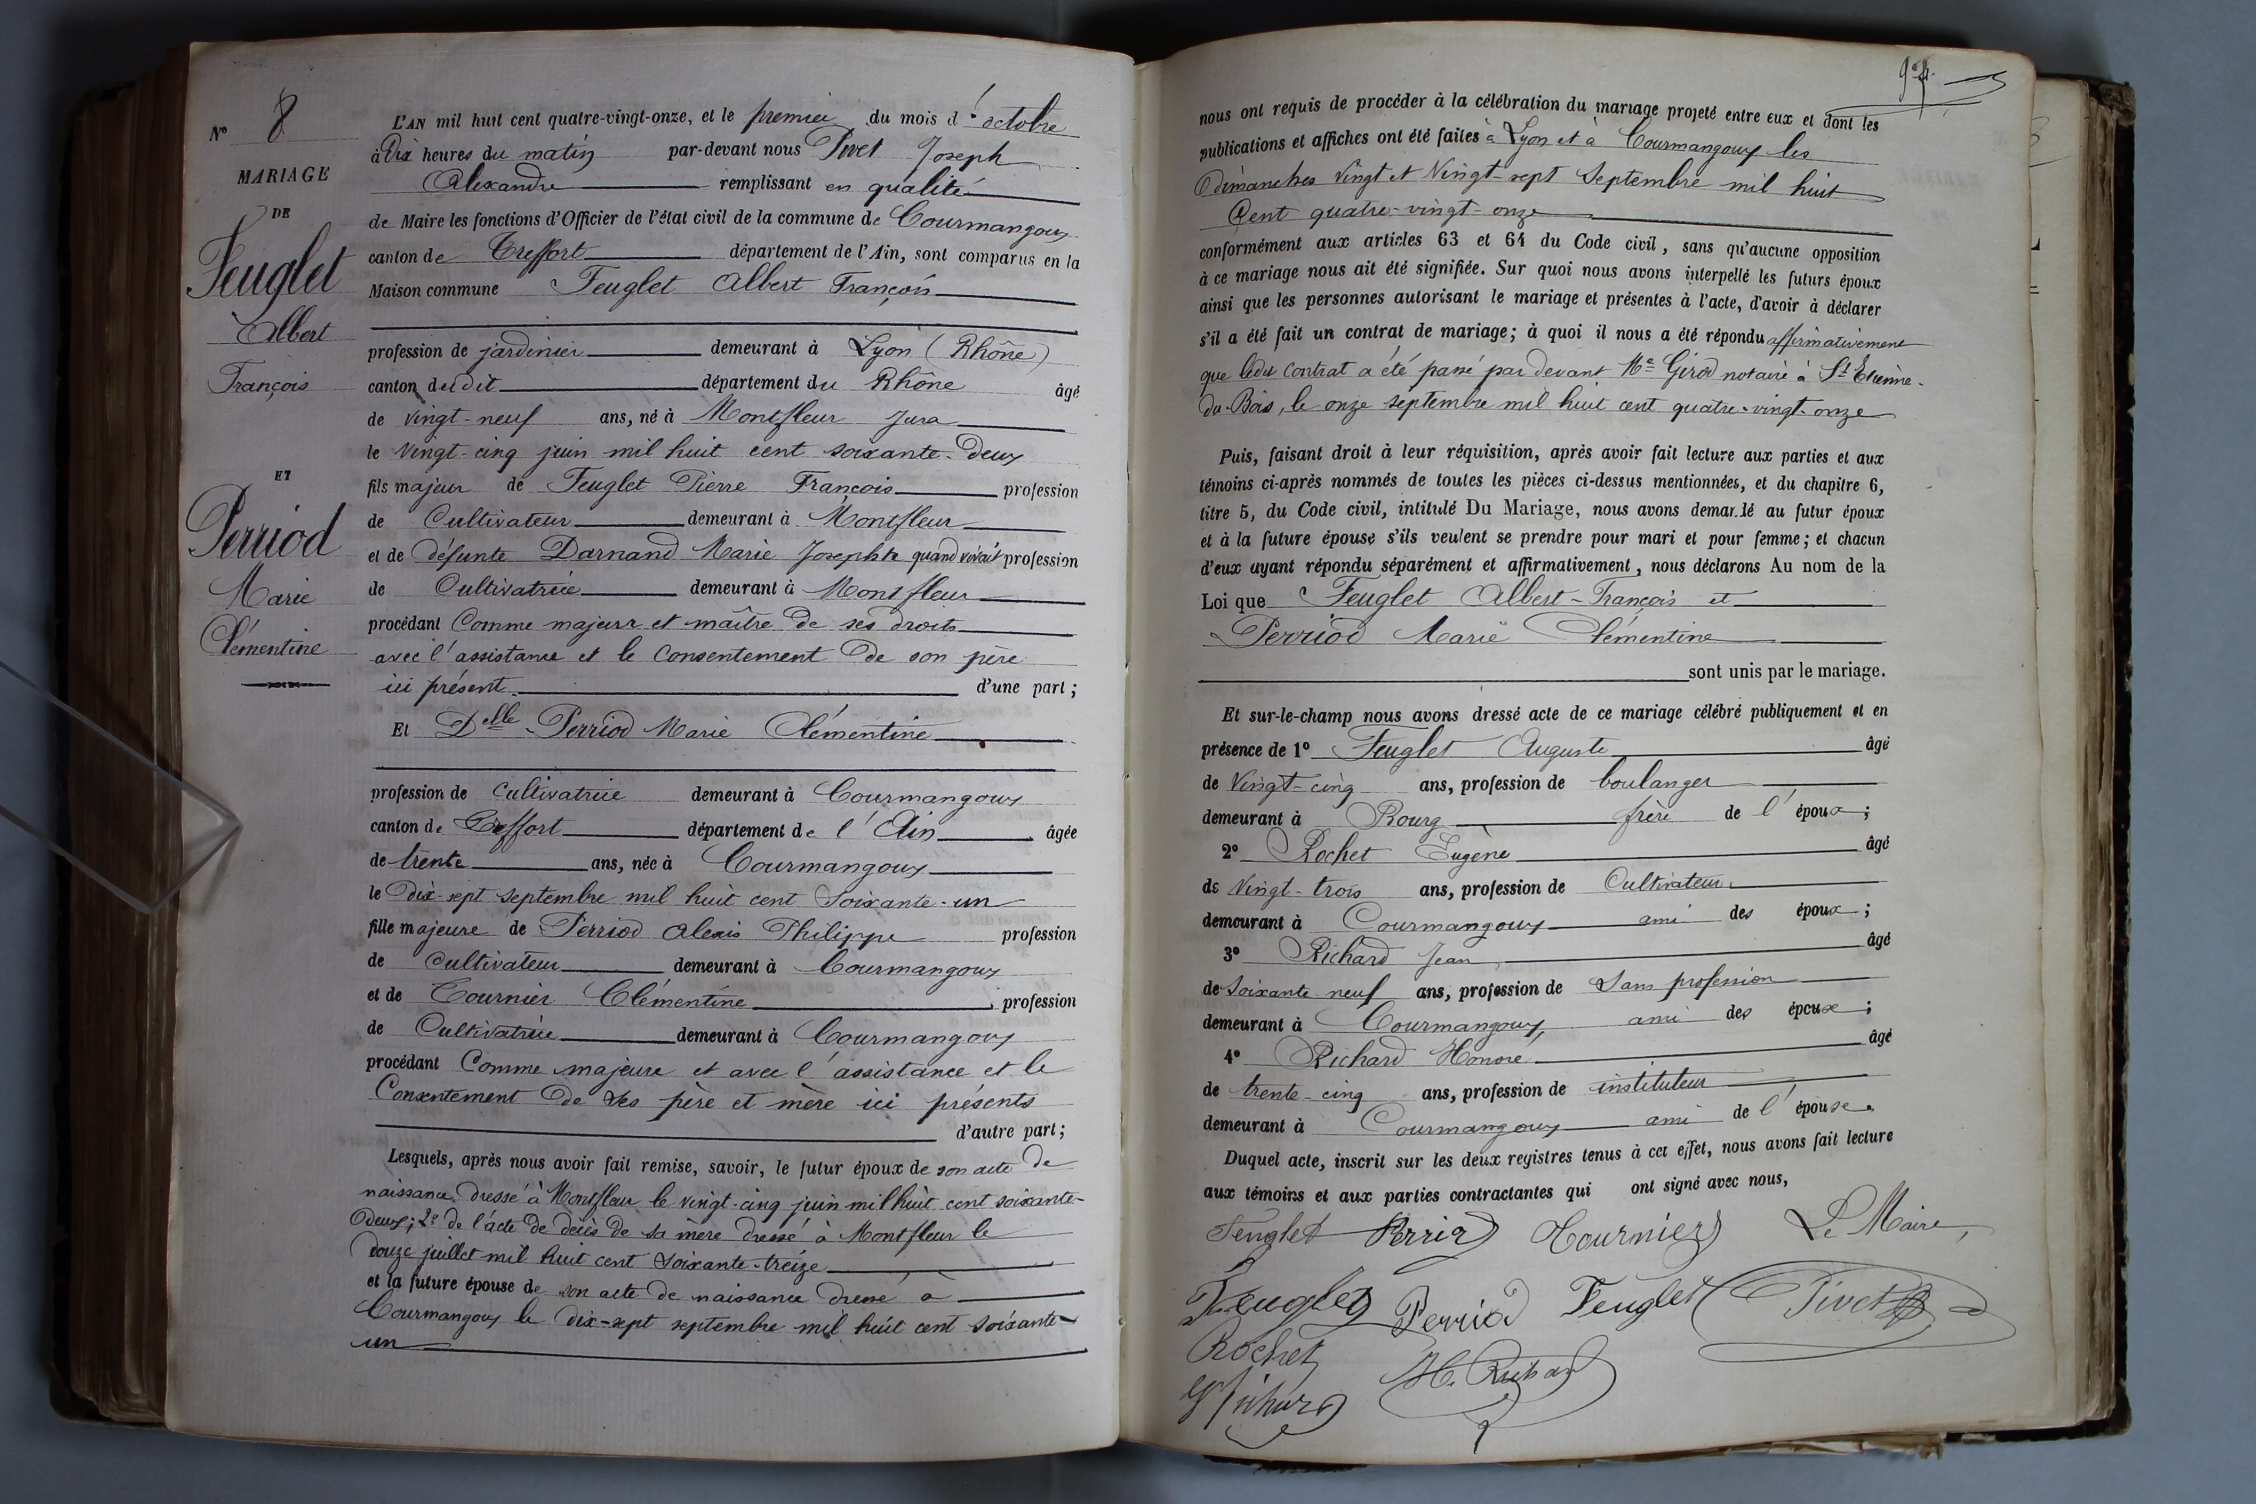 N° 8
MARIAGE
DE
Feuglet
Albert
François
ET
Perriod
Marie
Clémentine
L'AN mil huit cent quatre-vingt-onze, et le premier du mois d'octobre
à Dix heures du matin par-devant nous Pivet Joseph
Alexandre remplissant en qualité
de Maire les fonctions d'Officier de l'état civil de la commune de Courmangoux
canton de Treffort département de l'Ain, sont comparus en la
Maison commune Feuglet Albert François
profession de jardinier demeurant à Lyon (Rhône)
canton dudit département du Rhône âgé
de vingt-neuf ans, né à Montfleur Jura
le vingt-cinq juin mil huit cent soixante-deux
fils majeur de Feuglet Pierre François profession
de Cultivateur demeurant à Montfleur
et de défunte Darnand Marie Josephte quand vivait profession
de Cultivatrice demeurant à Montfleur
procédant Comme majeur et maître de ses droits
avec l'assistance et le consentement de son père
ici présent d'une part ;
Et Delle Perriod Marie Clémentine
profession de cultivatrice demeurant à Courmangoux
canton de Treffort département de l'Ain âgée
de trente ans, née à Courmangoux
le Dix-sept septembre mil huit cent soixante-un
fille majeure de Perriod Alexis Philippe profession
de cultivateur demeurant à Courmangoux
et de Tournier Clémentine profession
de Cultivatrice demeurant à Courmangoux
procédant Comme majeure et avec l'assistance et le
Consentement de ses père et mère ici présents
d'autre part ;
Lesquels, après nous avoir fait remise, savoir, le futur époux de son acte de
naissance dressé à Montfleur le vingt-cinq juin mil huit cent soixante-
deux ; 2° de l'acte de décès de sa mère dressé à Montfleur le
douze juillet mil huit cent soixante-treize
et la future épouse de son acte de naissance dressé à
Courmangoux le dix-sept septembre mil huit cent soixante-
un
nous ont requis de procéder à la célébration du mariage projeté entre eux et dont les
publications et affiches ont été faites à Lyon et à Courmangoux les
dimanches vingt et vingt-sept Septembre mil huit
Cent quatre-vingt-onze
conformément aux articles 63 et 64 du Code civil, sans qu'aucune opposition
à ce mariage nous ait été signifiée. Sur quoi nous avons interpellé les futurs époux
ainsi que les personnes autorisant le mariage et présentes à l'acte, d'avoir à déclarer
s'il a été fait un contrat de mariage ; à quoi il nous a été répondu affirmativement
que ledit contrat a été passé par devant Me Girod notaire à St Etienne-
du-Bois, le onze septembre mil huit cent quatre-vingt-onze
Puis, faisant droit à leur réquisition, après avoir fait lecture aux parties et aux
témoins ci-après nommés de toutes les pièces ci-dessus mentionnées, et du chapitre 6,
titre 5, du Code civil, intitulé Du Mariage, nous avons demandé au futur époux
et à la future épouse s'ils veulent se prendre pour mari et pour femme ; et chacun
d'eux ayant répondu séparément et affirmativement, nous déclarons Au nom de la
Loi que Feuglet Albert-François et
Perriod Marie Clémentine
sont unis par le mariage.
Et sur-le-champ nous avons dressé acte de ce mariage célébré publiquement et en
présence de 1° Feuglet Auguste âgé
de Vingt-cinq ans, profession de boulanger
demeurant à Bourg frère de l'époux ;
2° Rochet Eugène âgé
de Vingt-trois ans, profession de Cultivateur
demeurant à Courmangoux ami des époux ;
3° Richard Jean âgé
de soixante neuf ans, profession de Sans profession
demeurant à Courmangoux, ami des époux ;
4° Richard Honoré âgé
de trente-cinq ans, profession de instituteur
demeurant à Courmangoux ami de l'épouse.
Duquel acte, inscrit sur les deux registres tenus à cet effet, nous avons fait lecture
aux témoins et aux parties contractantes qui ont signé avec nous,
Feuglet Tournier Le Maire,
Feuglet Perriod Feuglet Pivet
Rochet H. Richard